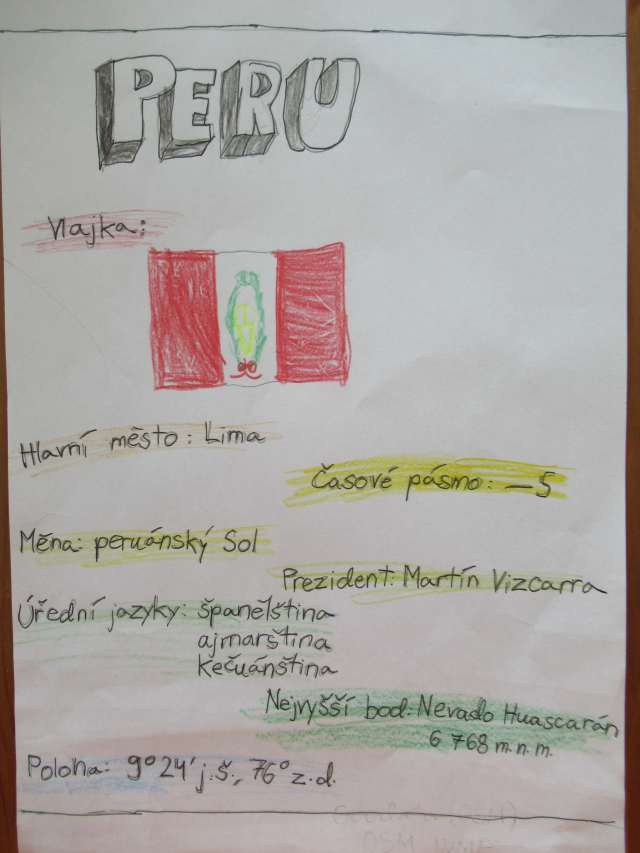 PERU
Vlajka:
Hlavní město: Lima
Časové pásmo: -5
Měna: peruánský Sol
Prezident: Martín Vizcarra
Úřední jazyky: španělština
ajmarština
Kečuánština
Nejvyšší bod: Nevado Huascarán
6 768 m.n.m.
Poloha: 9°24' j.š., 76° z.d.